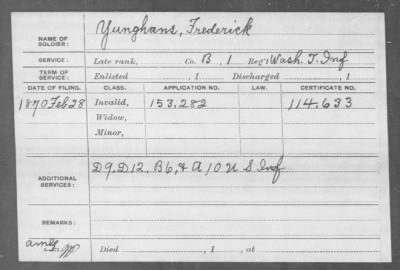 NAME OF SOLDIER: Yunghans, Frederick
SERVICE: Late rank, Co. B, 1 Reg't Wash. T. Inf
TERM OF SERVICE: Enlisted , 1 Discharged , 1
DATE OF FILING. CLASS. APPLICATION NO. LAW. CERTIFICATE NO.
1870 Feb 28 Invalid, 153,282 114,633
Widow,
Minor,
ADDITIONAL SERVICES: D 9, D 12, B 6, & A 10 U S Inf
REMARKS:
Died , 1 , at